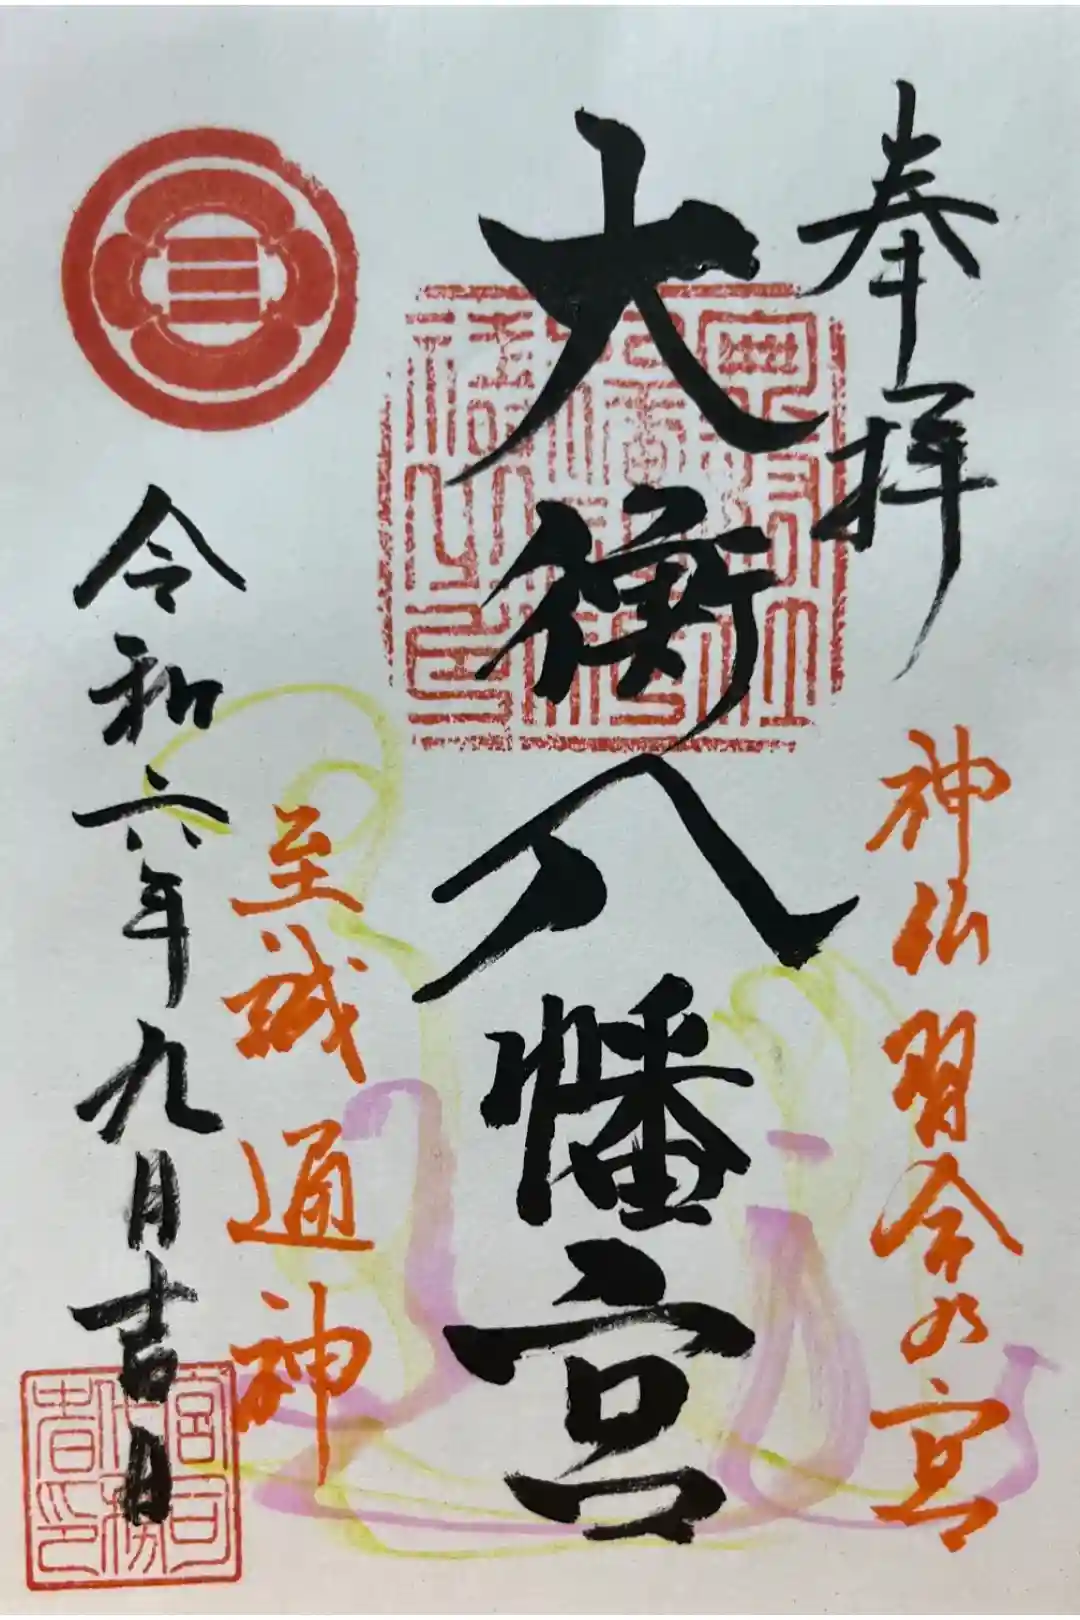 奉拝
神仏習合の宮
大衡八幡宮
至誠通神
令和六年九月吉日
宮司代務者印